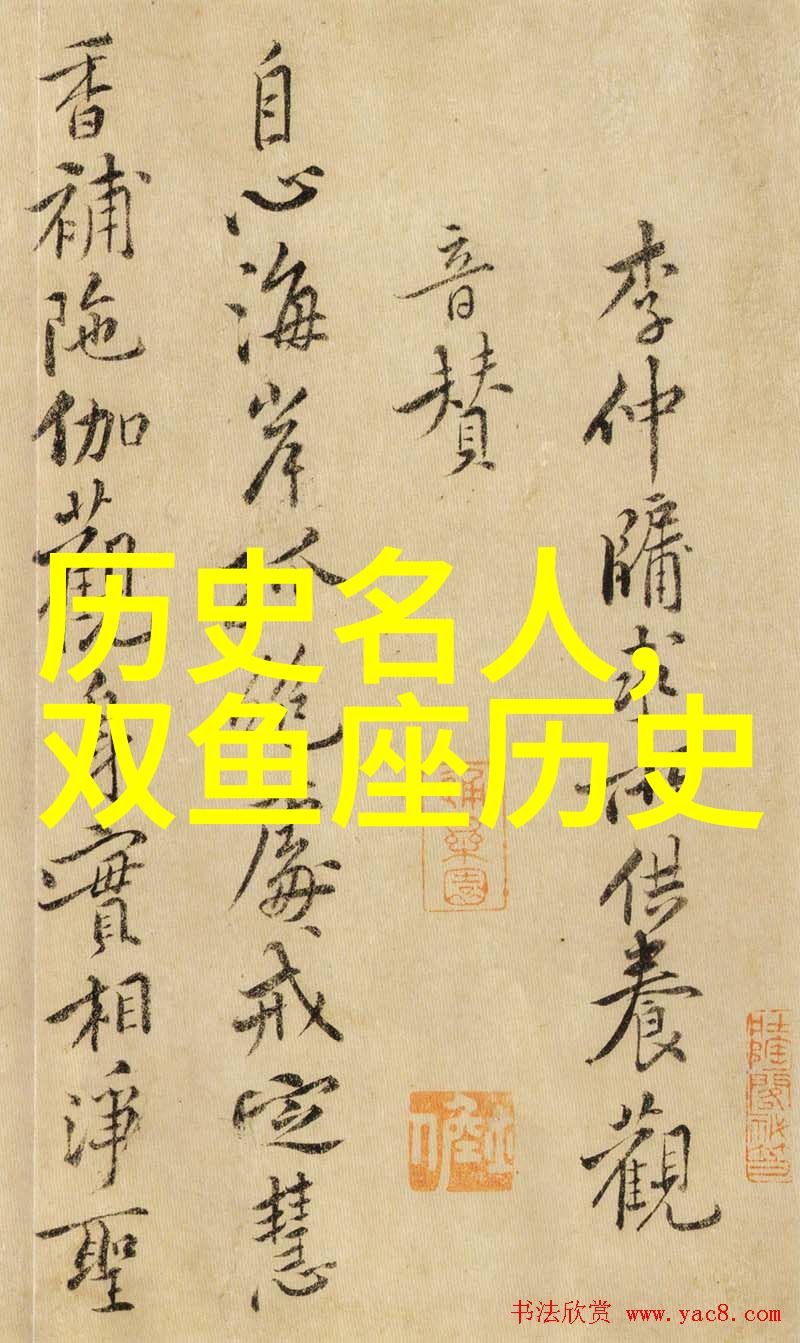 李仲牖求供養觀
音賛
自心海岸孤絕處戒定慧
香補陁伽觀身實相淨聖
历史名人,
双鱼座历史
书法欣赏 www.yac8.com